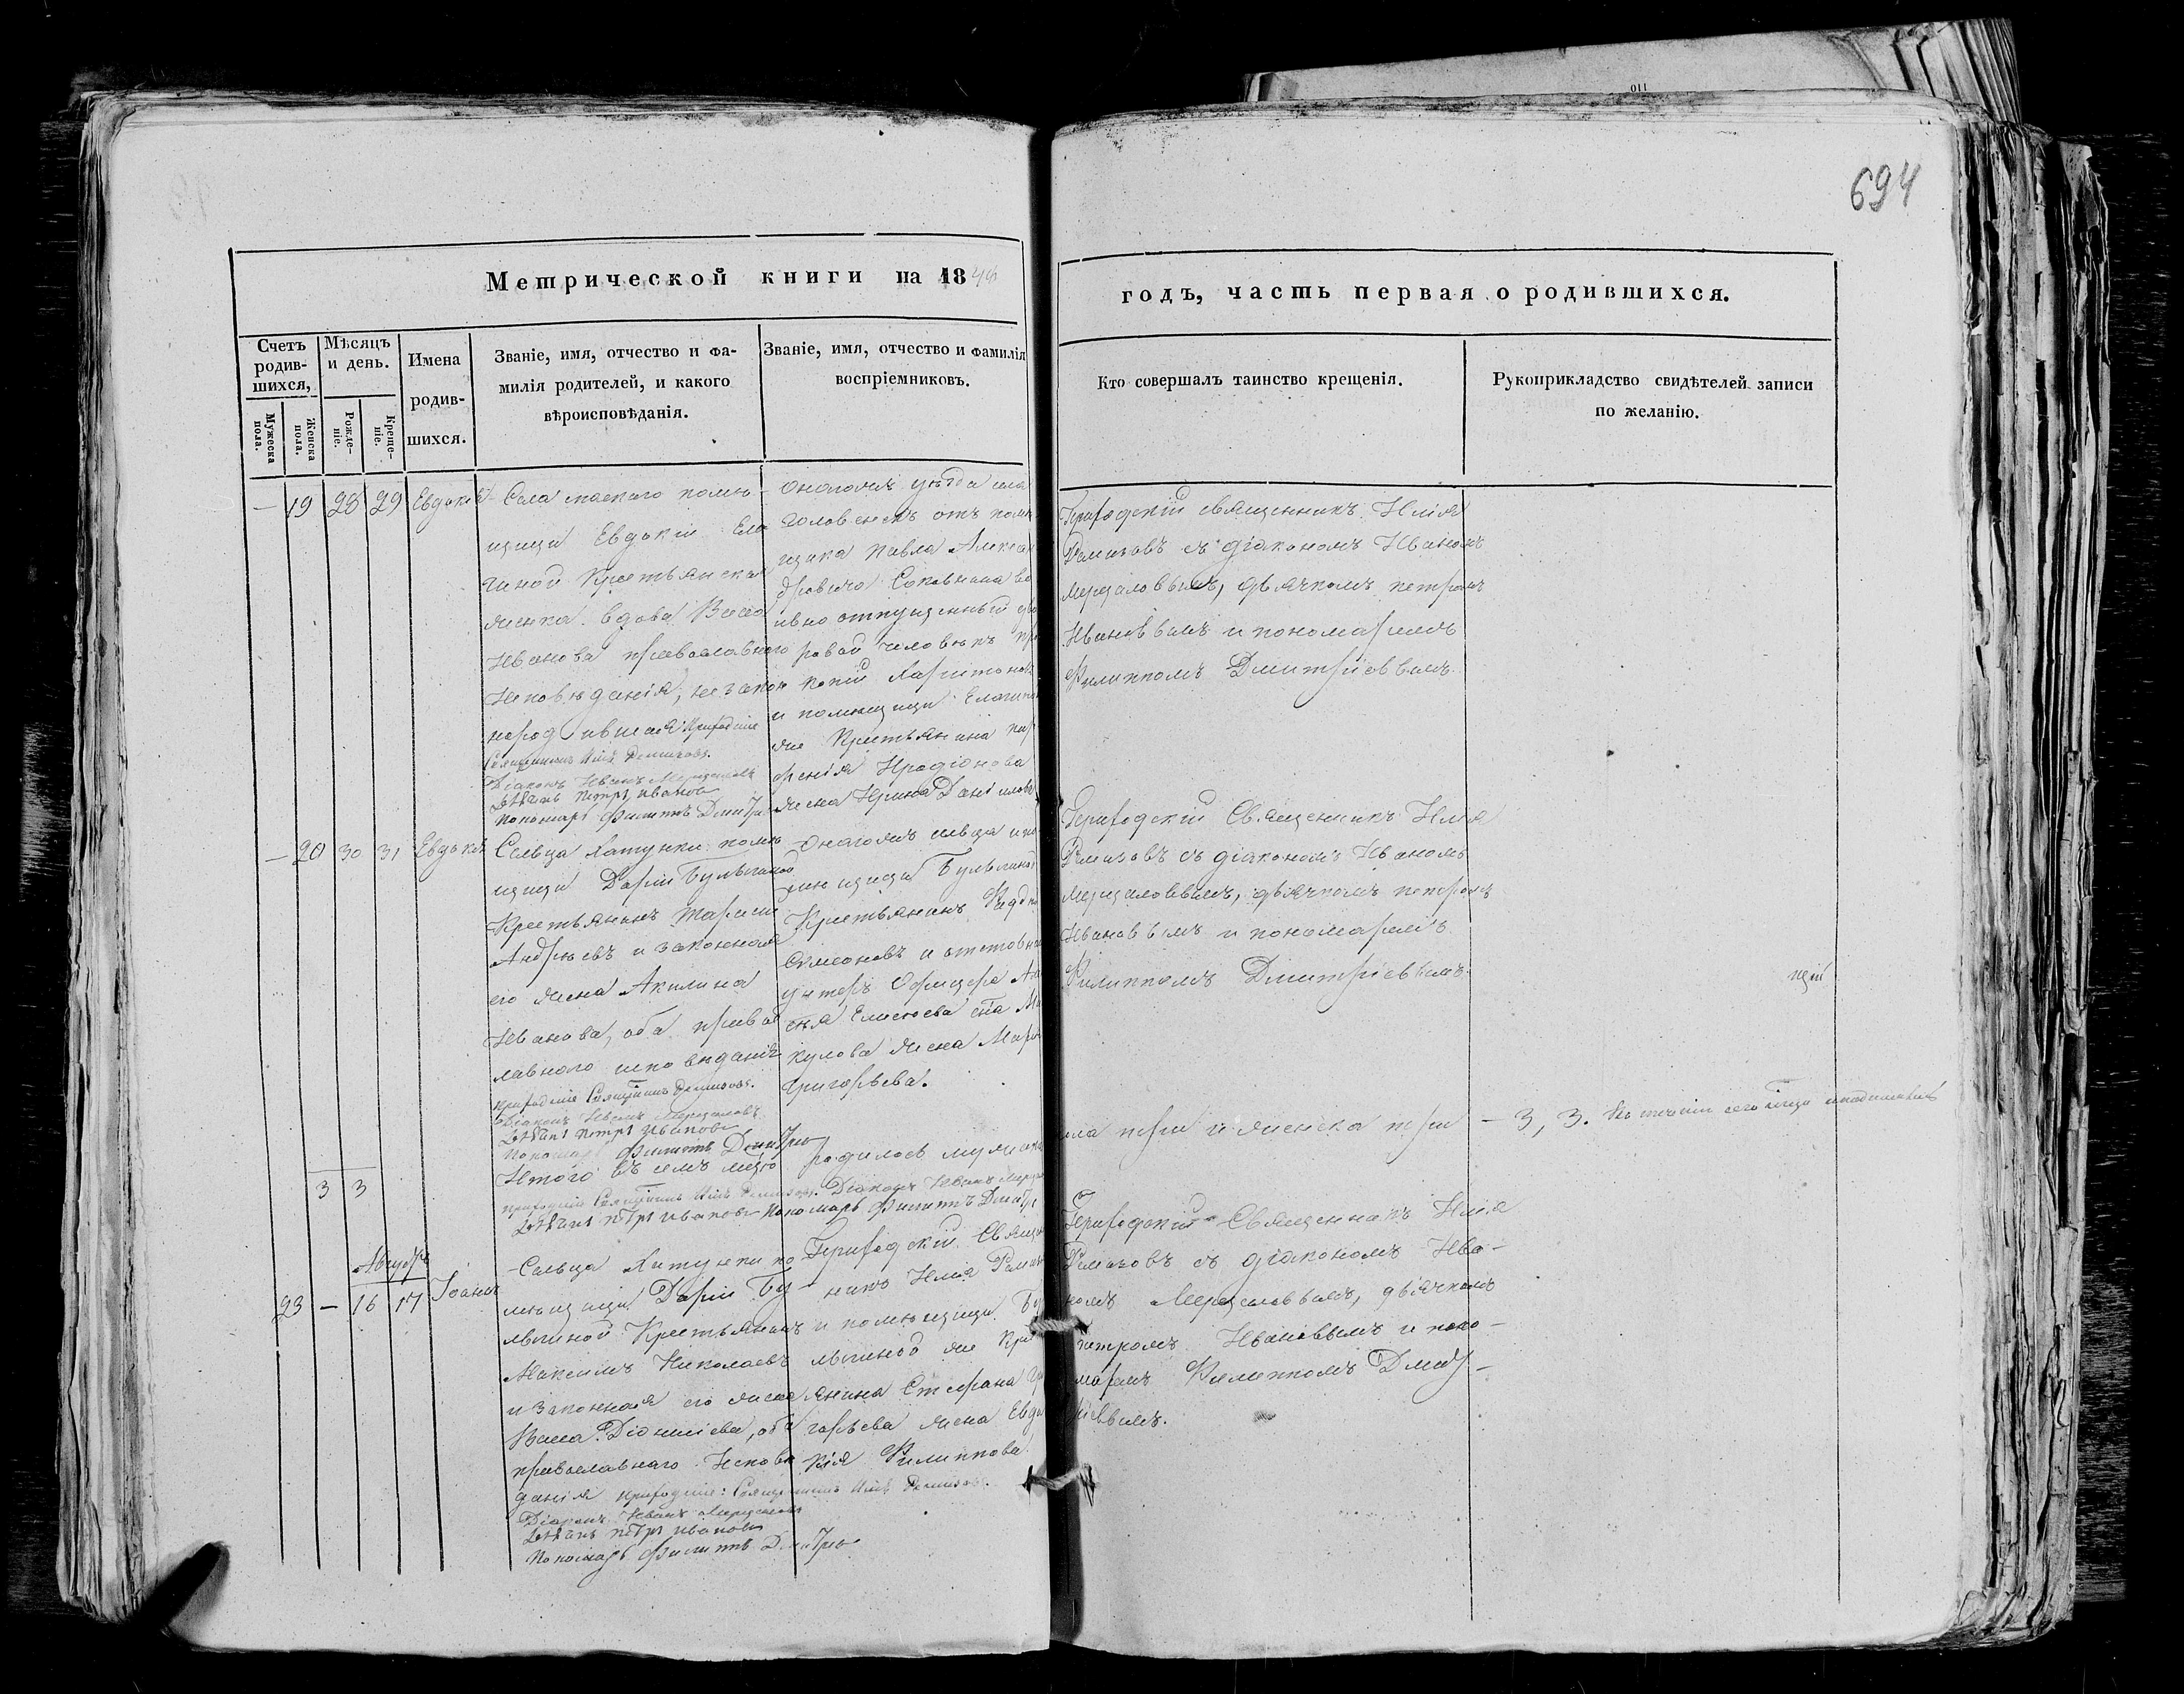 694
Метрической книги на 18
годъ, часть первая о родившихся.
Счетъ родив-шихся,
Мужеска пола.
Женска пола.
Мѣсяцъ и день.
Рожде-ніе.
Креще-ніе.
Имена
родив-
шихся.
Званіе, имя, отчество и фа-
милія родителей, и какого
вѣроисповѣданія.
Званіе, имя, отчество и фамилія
воспріемниковъ.
Кто совершалъ таинство крещенія.
Рукоприкладство свидѣтелей записи
по желанію.
— 19 28 29 Евдокія
Села помѣ-
щицы Евдокіи Ела
гиной Крестьянская
женка вдова Васса
Иванова православнаго
Исповѣданія, незакон
нородившая Приходскіе
Священникъ Илія Ремизовъ.
Діаконъ Иванъ Мерцаловъ
Дьячекъ Петръ Ивановъ
Пономарь Филиппъ Дмитріе
Онагожъ уѣзда села
Головенекъ отъ помѣ
щика Павла Алексан
дровича Соковнина во
льно отпущенный дво
ровой человѣкъ Про
копій Харитоновъ
и помѣщицы Елагиной
же Крестьянина Пар
фенія Иродіонова
жена Ирина Данілова
Приходскій священникъ Илія
Ремизовъ съ діакономъ Иваномъ
Мерцаловымъ, дьячкомъ Петромъ
Ивановымъ и пономаремъ
Филиппомъ Дмитріевымъ.
— 20 30 31 Евдокія
Сельца Хатунки помѣ
щицы Даріи Булыгиной
Крестьянинъ Тарасій
Андреевъ и законная
его жена Акилина
Иванова, оба право
лавного исповѣданія
приходскіе Священникъ Ремизовъ.
Діаконъ Иванъ Мерцаловъ
Дьячекъ Петръ Ивановъ
Пономарь Филиппъ Дмитріе
Онагожъ сельца и по
мѣщицы Булыгиной
Крестьянинъ
Симеоновъ и отставнаго
унтеръ Офицера
Елисеева
кулова жена Марѳа
Григорьева.
Приходскій Священникъ Илія
Ремизовъ съ діакономъ Иваномъ
Мерцаловымъ, дьячкомъ Петромъ
Ивановымъ и пономаремъ
Филиппомъ Дмитріевымъ.
щій
3 3
Итого въ семъ мѣсяцѣ родилось мужеска
пола три и женска три — 3, 3.
приходскіе Священникъ Илія Ремизовъ. Діаконъ Иванъ Мерца
Дьячекъ Петръ Ивановъ Пономарь Филиппъ Дмитрі
Августъ
23 — 16 17 Іоаннъ
Сельца Хатунки по
мѣщицы Даріи Бу
лыгиной Крестьянинъ
Максимъ Николаевъ
и законная его жена
Васса Діонисіева, оба
православнаго Исповѣ
данія приходскіе: Священникъ Илія Ремизовъ.
Діаконъ Иванъ Мерцаловъ
Дьячекъ Петръ Ивановъ
Пономарь Филиппъ Дмитріе
Приходскій Священ
никъ Илія Ремизо
и помѣщицы Бу
лыгиной же Крес
янина Стефана Гри
горьева жена Евдо
кія Филиппова.
Приходскій Священникъ Илія
Ремизовъ съ діакономъ Ива-
номъ Мерцаловымъ, дьячкомъ
Петромъ Ивановымъ и поно-
маремъ Филиппомъ Дмит-
ріевымъ.